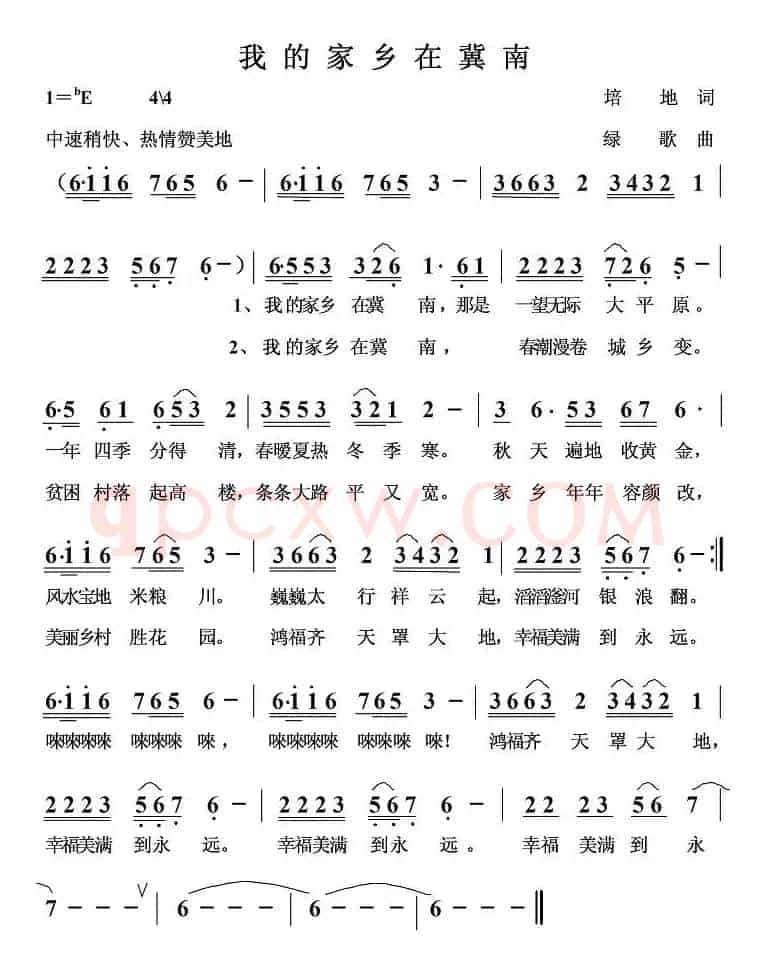 我的家乡在冀南
1=ᵇE 4\4 培 地 词
中速稍快、热情赞美地 绿 歌 曲
(6·i i 6 7 6 5 6 - | 6·i i 6 7 6 5 3 - | 3 6 6 3 2 3 4 3 2 1 |
2 2 2 3 5 6 7 6 -) | 6·5 5 3 3 2 6 1· 6 1 | 2 2 2 3 7 2 6 5 - |
1、我的家乡 在冀 南，那是 一望无际 大 平 原。
2、我的家乡 在冀 南， 春潮漫卷 城 乡 变。
6·5 6 1 6 5 3 2 | 3 5 5 3 3 2 1 2 - | 3 6· 5 3 6 7 6· |
一年 四季 分得 清，春暖夏热 冬 季 寒。 秋 天 遍地 收黄 金，
贫困 村落 起高 楼，条条大路 平 又 宽。 家 乡 年年 容颜 改，
qpcxw.COM
6·i i 6 7 6 5 3 - | 3 6 6 3 2 3 4 3 2 1 | 2 2 2 3 5 6 7 6 - :‖
风水宝地 米粮 川。 巍巍太 行 祥 云 起，滔滔滏河 银 浪 翻。
美丽乡村 胜花 园。 鸿福齐 天 罩 大 地，幸福美满 到 永 远。
6·i i 6 7 6 5 6 - | 6·i i 6 7 6 5 3 - | 3 6 6 3 2 3 4 3 2 1 |
唻唻唻唻 唻唻唻 唻， 唻唻唻唻 唻唻唻 唻！ 鸿福齐 天 罩 大 地，
2 2 2 3 5 6 7 6 - | 2 2 2 3 5 6 7 6 - | 2 2 2 2 3 5 6 7 |
幸福美满 到永 远。 幸福美满 到永 远 。 幸福 美满 到 永
7 - - - ∨ | 6 - - - | 6 - - - | 6 - - - ‖